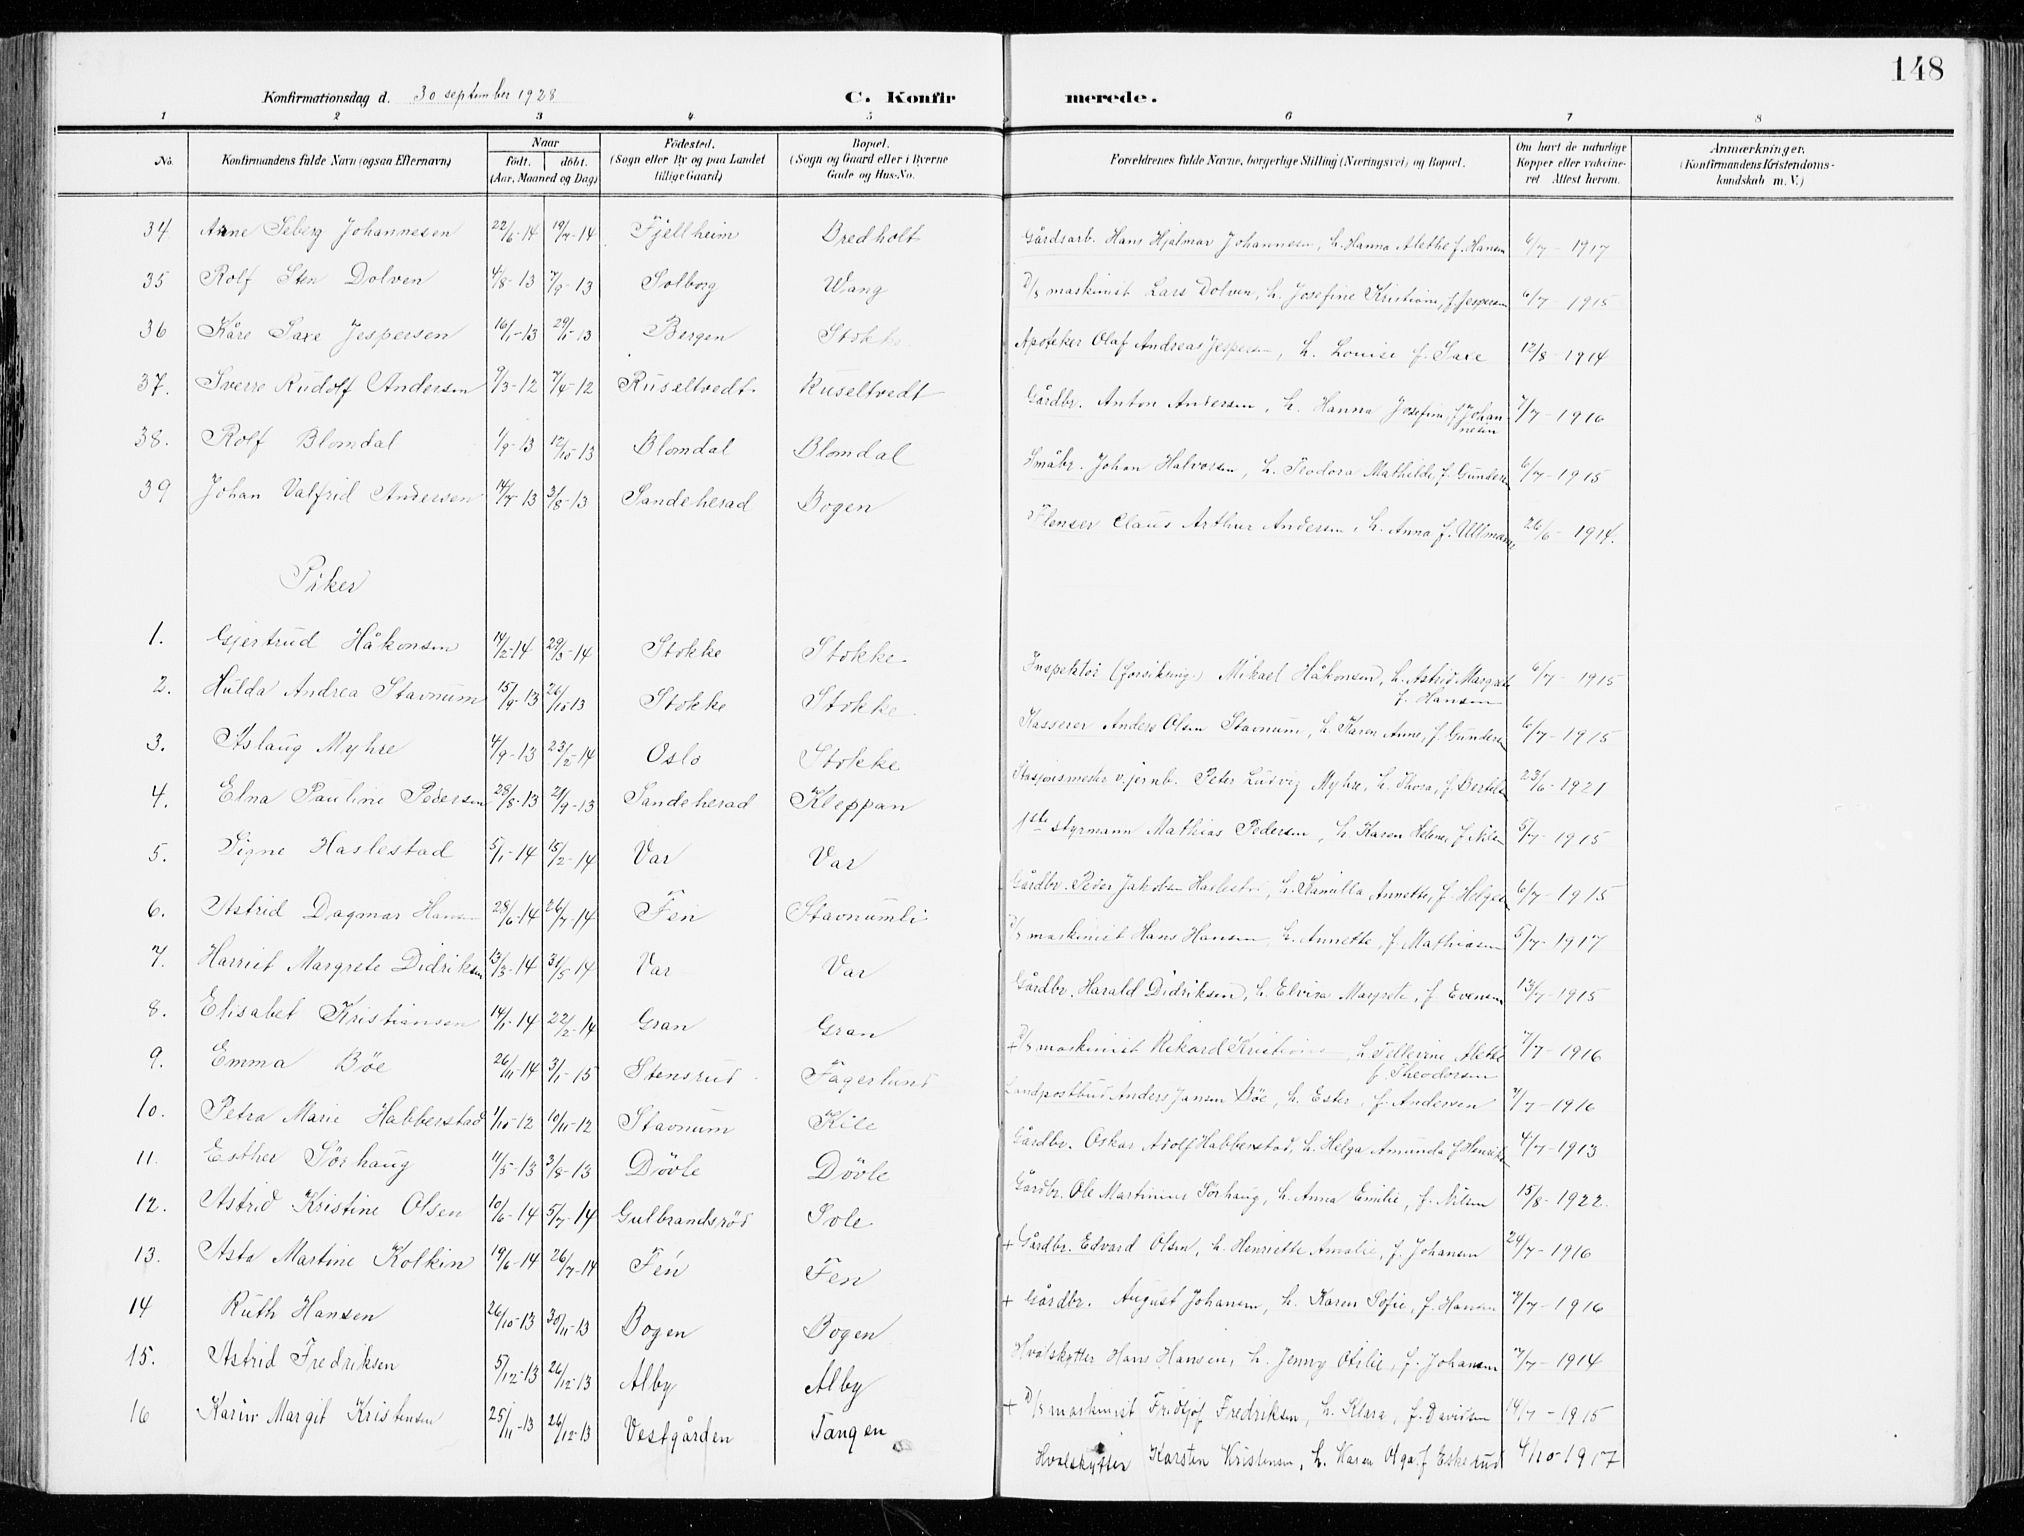 148
Konfirmationsdag d. 30 september 1928 C. Konfirmerede.
1 2 3 4 5 6 7 8
No. Konfirmandens fulde Navn (ogsaa Efternavn) Naar født. døbt. (Aar, Maaned og Dag) Fødested. (Sogn eller By og paa Landet tillige Gaard) Bopæl. (Sogn og Gaard eller i Byerne Gade og Hus-No. Forældrenes fulde Navne, borgerlige Stilling (Næringsvei) og Bopæl. Om havt de naturlige Kopper eller vakcineret Attest herom. Anmærkninger. (Konfirmandens Kristendomskundskab m. V.)
34 Anne Seberg Johannesen 22/6-14 19/7-14 Fjellheim Bredholt Gårdsarb. Hans Hjalmar Johannesen, h. Hanna Alethe f. Hansen 6/7-1917
35 Rolf Sten Dolven 4/8-13 7/9-13 Solborg Wang D/s maskinist Lars Dolven, h. Josefine Kristiane, f. Jespersen 6/7-1915
36 Kåre Saxe Jespersen 16/1-13 29/1-13 Bergen Stokke Apoteker Olaf Andreas Jespersen, h. Louise f. Saxe 12/8-1914
37. Sverre Rudolf Andersen 9/3-12 7/4-12 Ruseltvedt Ruseltvedt Gårdbr. Anton Andersen, h. Hanna Josefine, f. Johannesen 7/7-1916
38. Rolf Blomdal 1/9-13 12/10-13 Blomdal Blomdal Småbr. Johan Halvorsen, h. Teodora Mathilde, f. Gundersen 6/7-1915
39 Johan Valfrid Andersen 14/7-13 3/8-13 Sandeherad Bogen Flenser Claus Arthur Andersen, h. Anna f. Ullmann 26/6-1914.
Piker
1. Gjertrud Håkonsen 14/2-14 29/3-14 Stokke Stokke Inspektør (forsikring.) Mikael Håkonsen, h. Astrid Margrete f. Hansen 6/7-1915
2. Hulda Andrea Stavnum 15/9-13 26/10-13 Stokke Stokke Kasserer Anders Olsen Stavnum, h. Karen Anne, f. Gundersen 6/7-1915
3. Aslaug Myhre 4/9-13 23/2-14 Oslo Stokke Stasjonsmester v. jernb. Peter Ludvig Myhre, h. Thora, f. Bertelsen 23/6-1921
4. Elna Pauline Pedersen 28/8-13 21/9-13 Sandeherad Kleppan 1ste styrmann Mathias Pedersen, h. Karen Helene, f. Nilsen 5/7-1915
5. Signe Haslestad 5/1-14 15/2-14 Var Var Gårdbr. Peder Jakobsen Haslestad, h. Kamilla Annette, f. Helgesen 6/7-1915
6. Astrid Dagmar Hansen 28/6-14 26/7-14 Fen Stavnumli D/s maskinist Hans Hansen, h. Annette, f. Mathiasen 5/7-1917
7. Harriet Margrete Didriksen 13/3-14 31/5-14 Var Var Gårdbr. Harald Didriksen, h. Elvira Margrete, f. Evensen 13/7-1915
8. Elisabet Kristiansen 14/1-14 22/2-14 Gran Gran + D/s maskinist Rikard Kristiansen, h. Tellevine Alethe f. Theodorsen 7/7-1916
9. Emma Bøe 26/11-14 3/1-15 Stensrud Fagerlund Landpostbud Anders Jansen Bøe, h. Ester, f. Andersen 7/7-1916
10. Petra Marie Habberstad 1/10-12 10/11-12 Stavnum Kile Gårdbr. Oskar Adolf Habberstad, h. Helga Amunda f. Henriksen 4/7-1913
11. Esther Sørhaug 11/5-13 3/8-13 Døvle Døvle Gårdbr. Ole Martinius Sørhaug, h. Anna Emilie, f. Nilsen 15/8-1922.
12. Astrid Kristine Olsen 10/6-14 5/7-14 Gulbrandsrød Sole + Gårdbr. Edvard Olsen, h. Henriette Amalie, f. Johansen 24/7-1916
13. Asta Martine Kolkin 19/6-14 26/7-14 Fen Fen + Gårdbr. August Johansen, h. Karen Sofie, f. Hansen 7/7-1916
14 Ruth Hansen 26/10-13 30/11-13 Bogen Bogen Hvalskytter Hans Hansen, h. Jenny Otilie, f. Johansen 7/7-1914
15. Astrid Fredriksen 5/12-13 26/12-13 Alby Alby + D/s maskinist Fridtjof Fredriksen, h. Klara, f. Davidsen 14/7-1915
16 Karin Margit Kristensen 25/11-13 26/12-13 Vestgården Tangen Hvalskytter Karsten Kristensen, h. Karen Olga f. Eskerud 4/10-1917